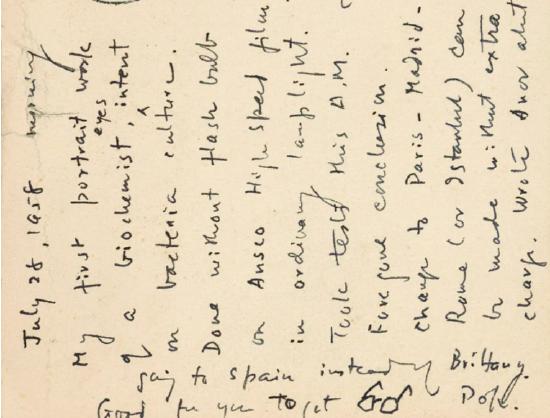 July 28, 1958 morning
My first portrait work
eyes
of a biochemist, intent
on bacteria culture.
Done without flash bulb
on Ansco High Speed film
in ordinary lamplight.
Took tests this A.M.
Foregone conclusion.
Change to Paris-Madrid-
Rome (or Istanbul) can
be made without extra
charge. Wrote
going to spain instead of Brittany.
Good for you to get